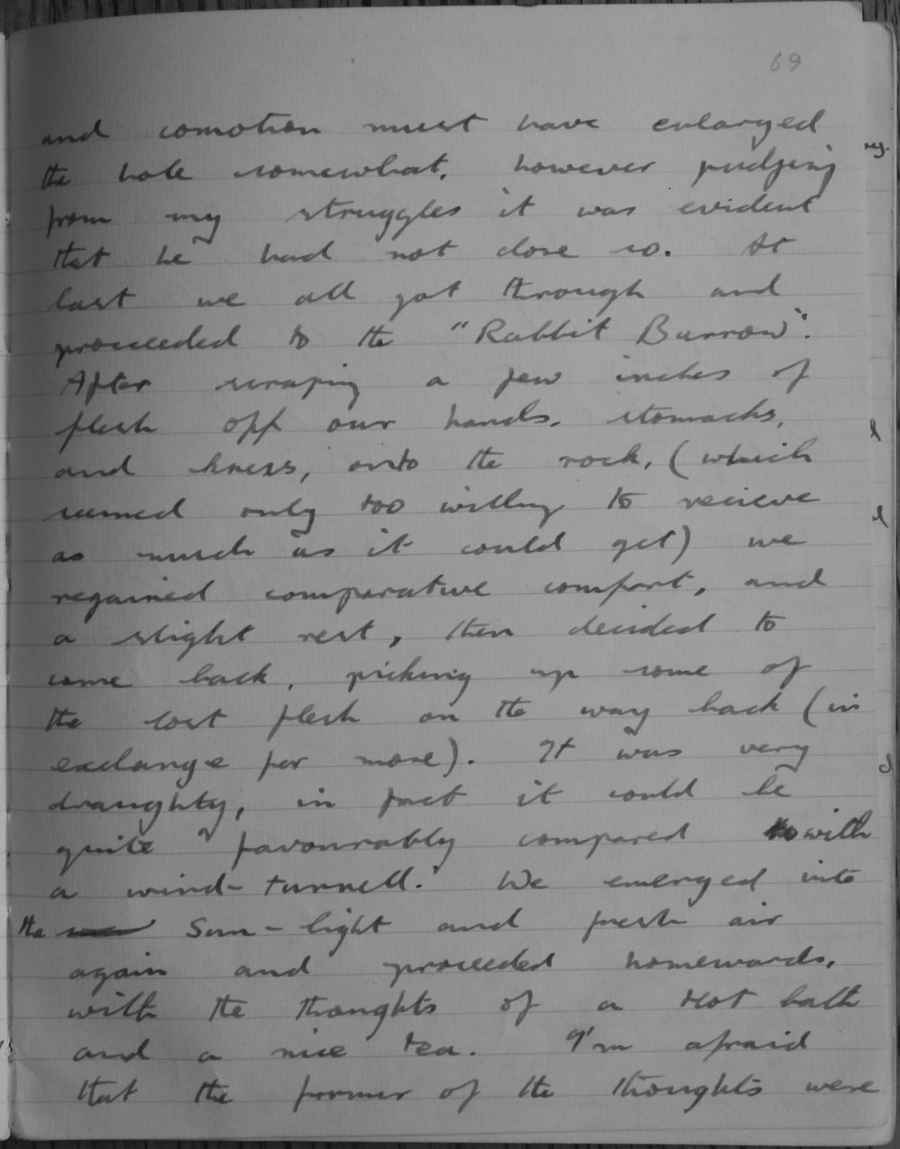 69
and comotion must have enlarged
the hole somewhat, however judging
from my struggles it was evident
that he had not done so. At
last we all got through and
proceeded to the "Rabbit Burrow".
After scraping a few inches of
flesh off our hands, stomachs,
and knees, onto the rock, (which
seemed only too willing to recieve
as much as it could get) we
regained comparative comfort, and
a slight rest, then decided to
come back, picking up some of
the lost flesh on the way back (in
exchange for more). It was very
draughty, in fact it could be
quite favourably compared to with
a wind-tunnell. We emerged into
the Sun-light and fresh air
again and proceeded homewards,
with the thoughts of a Hot bath
and a nice tea. I'm afraid
that the former of the thoughts were